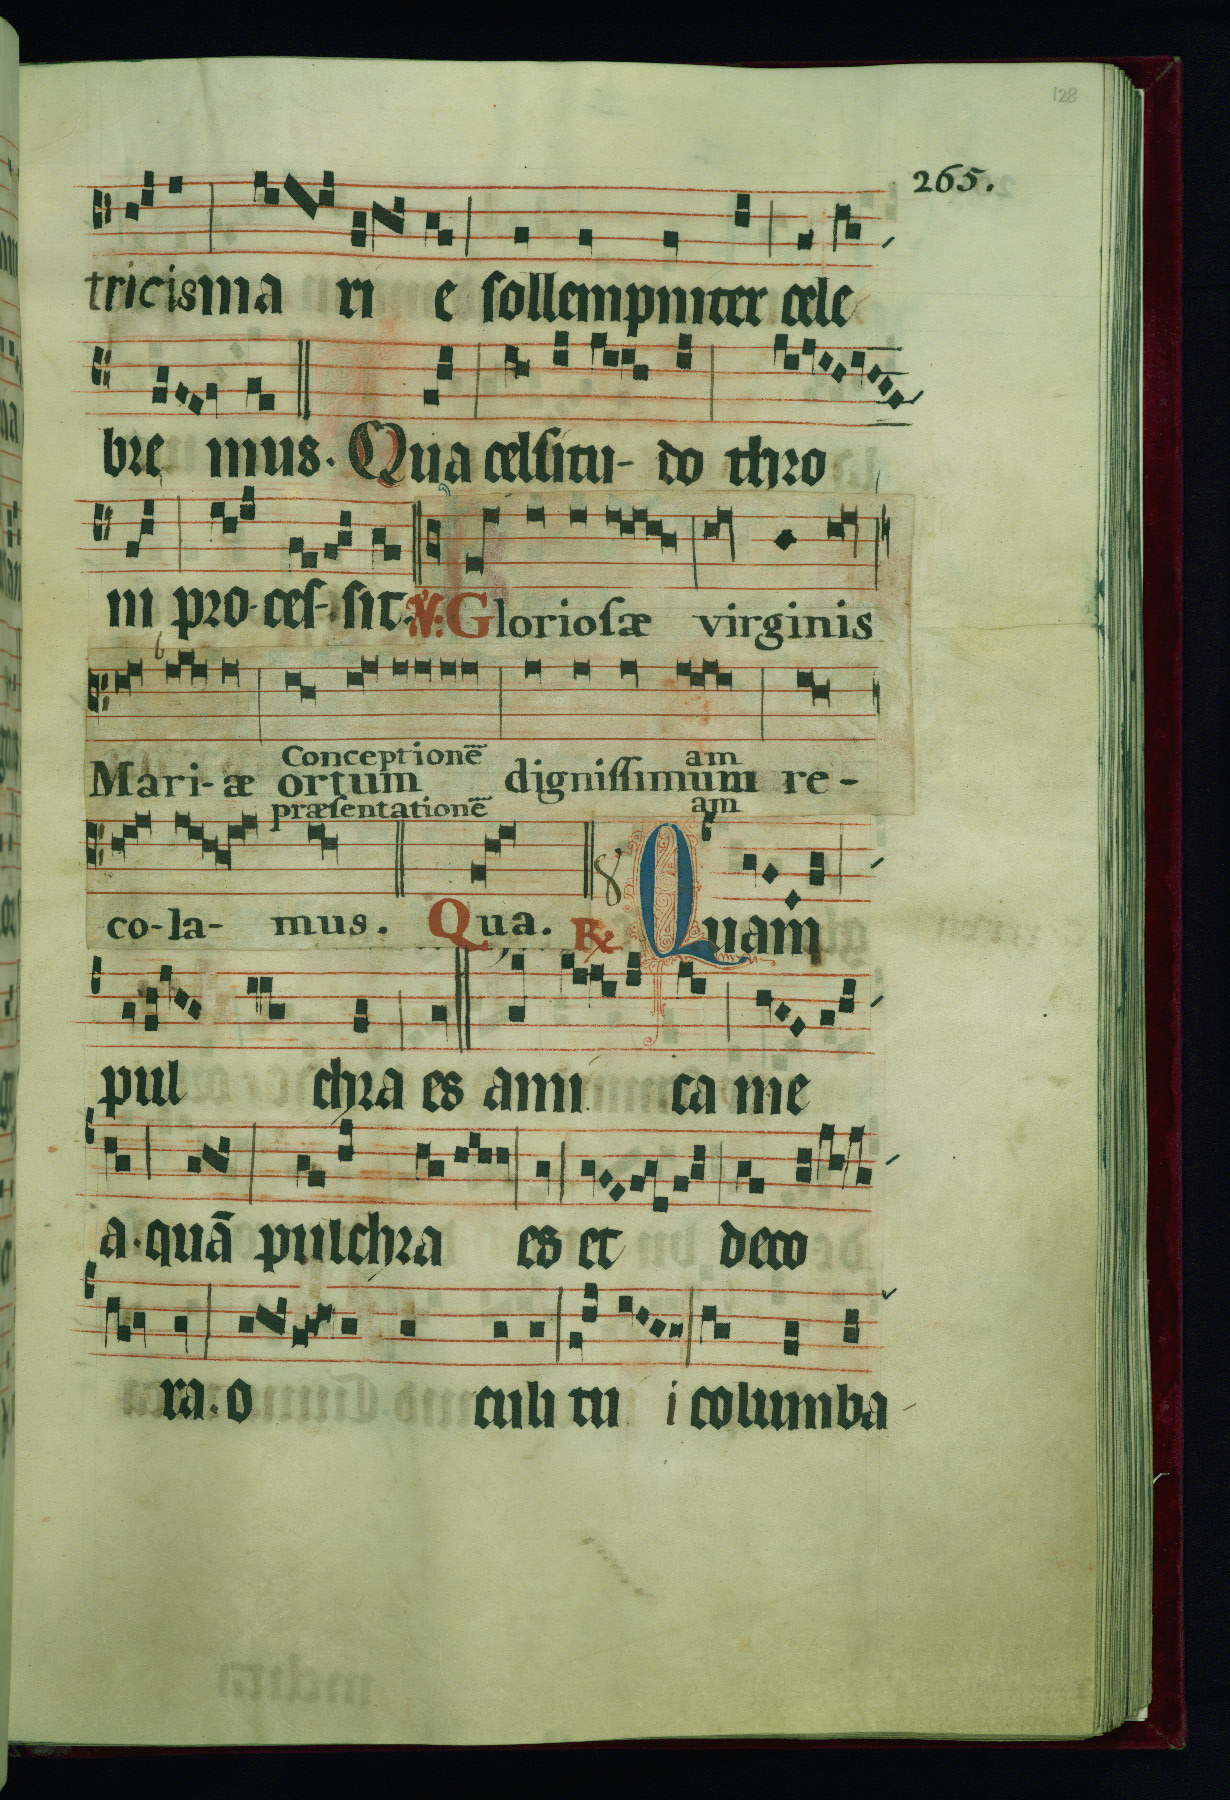 128
265.
tricis ma ri e sollempniter cele
bre mus. Qua celsitu- do thro
ni pro- ces- sit. ℣. Gloriosæ virginis
Conceptionē am
Mari-æ ortum dignissimum re-
præsentationē am
co-la- mus. Qua. ℟ 8 Quam
pul chra es ami ca me
a. quā pulchra es et deco
ra. o culi tu i columba